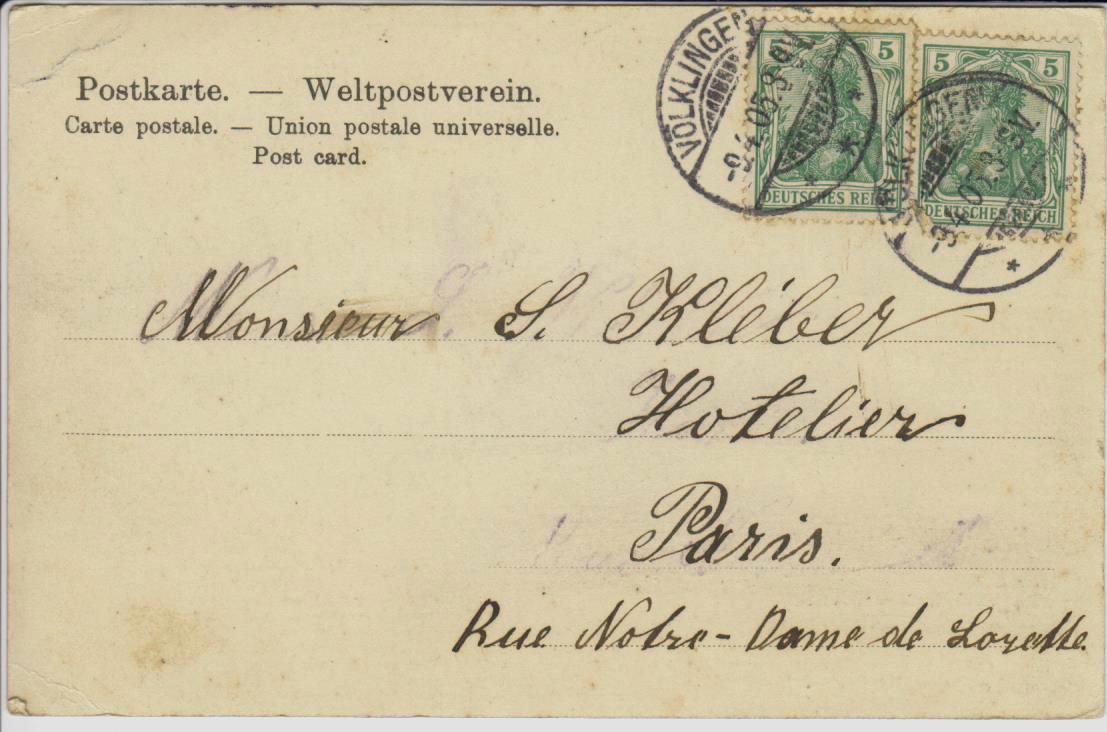 Postkarte. — Weltpostverein.
Carte postale. — Union postale universelle.
Post card.
VÖLKLINGEN
-9.4.05.8-9V.
5
DEUTSCHES REICH
5 5
DEUTSCHES REICH
Monsieur S. Kléber
Hotelier
Paris.
Rue Notre-Dame de Lorette.